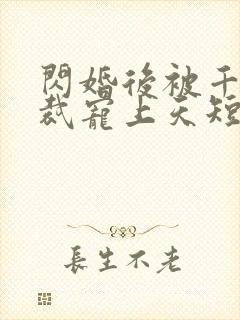 閃婚後被千
裁寵上天短
長生不老